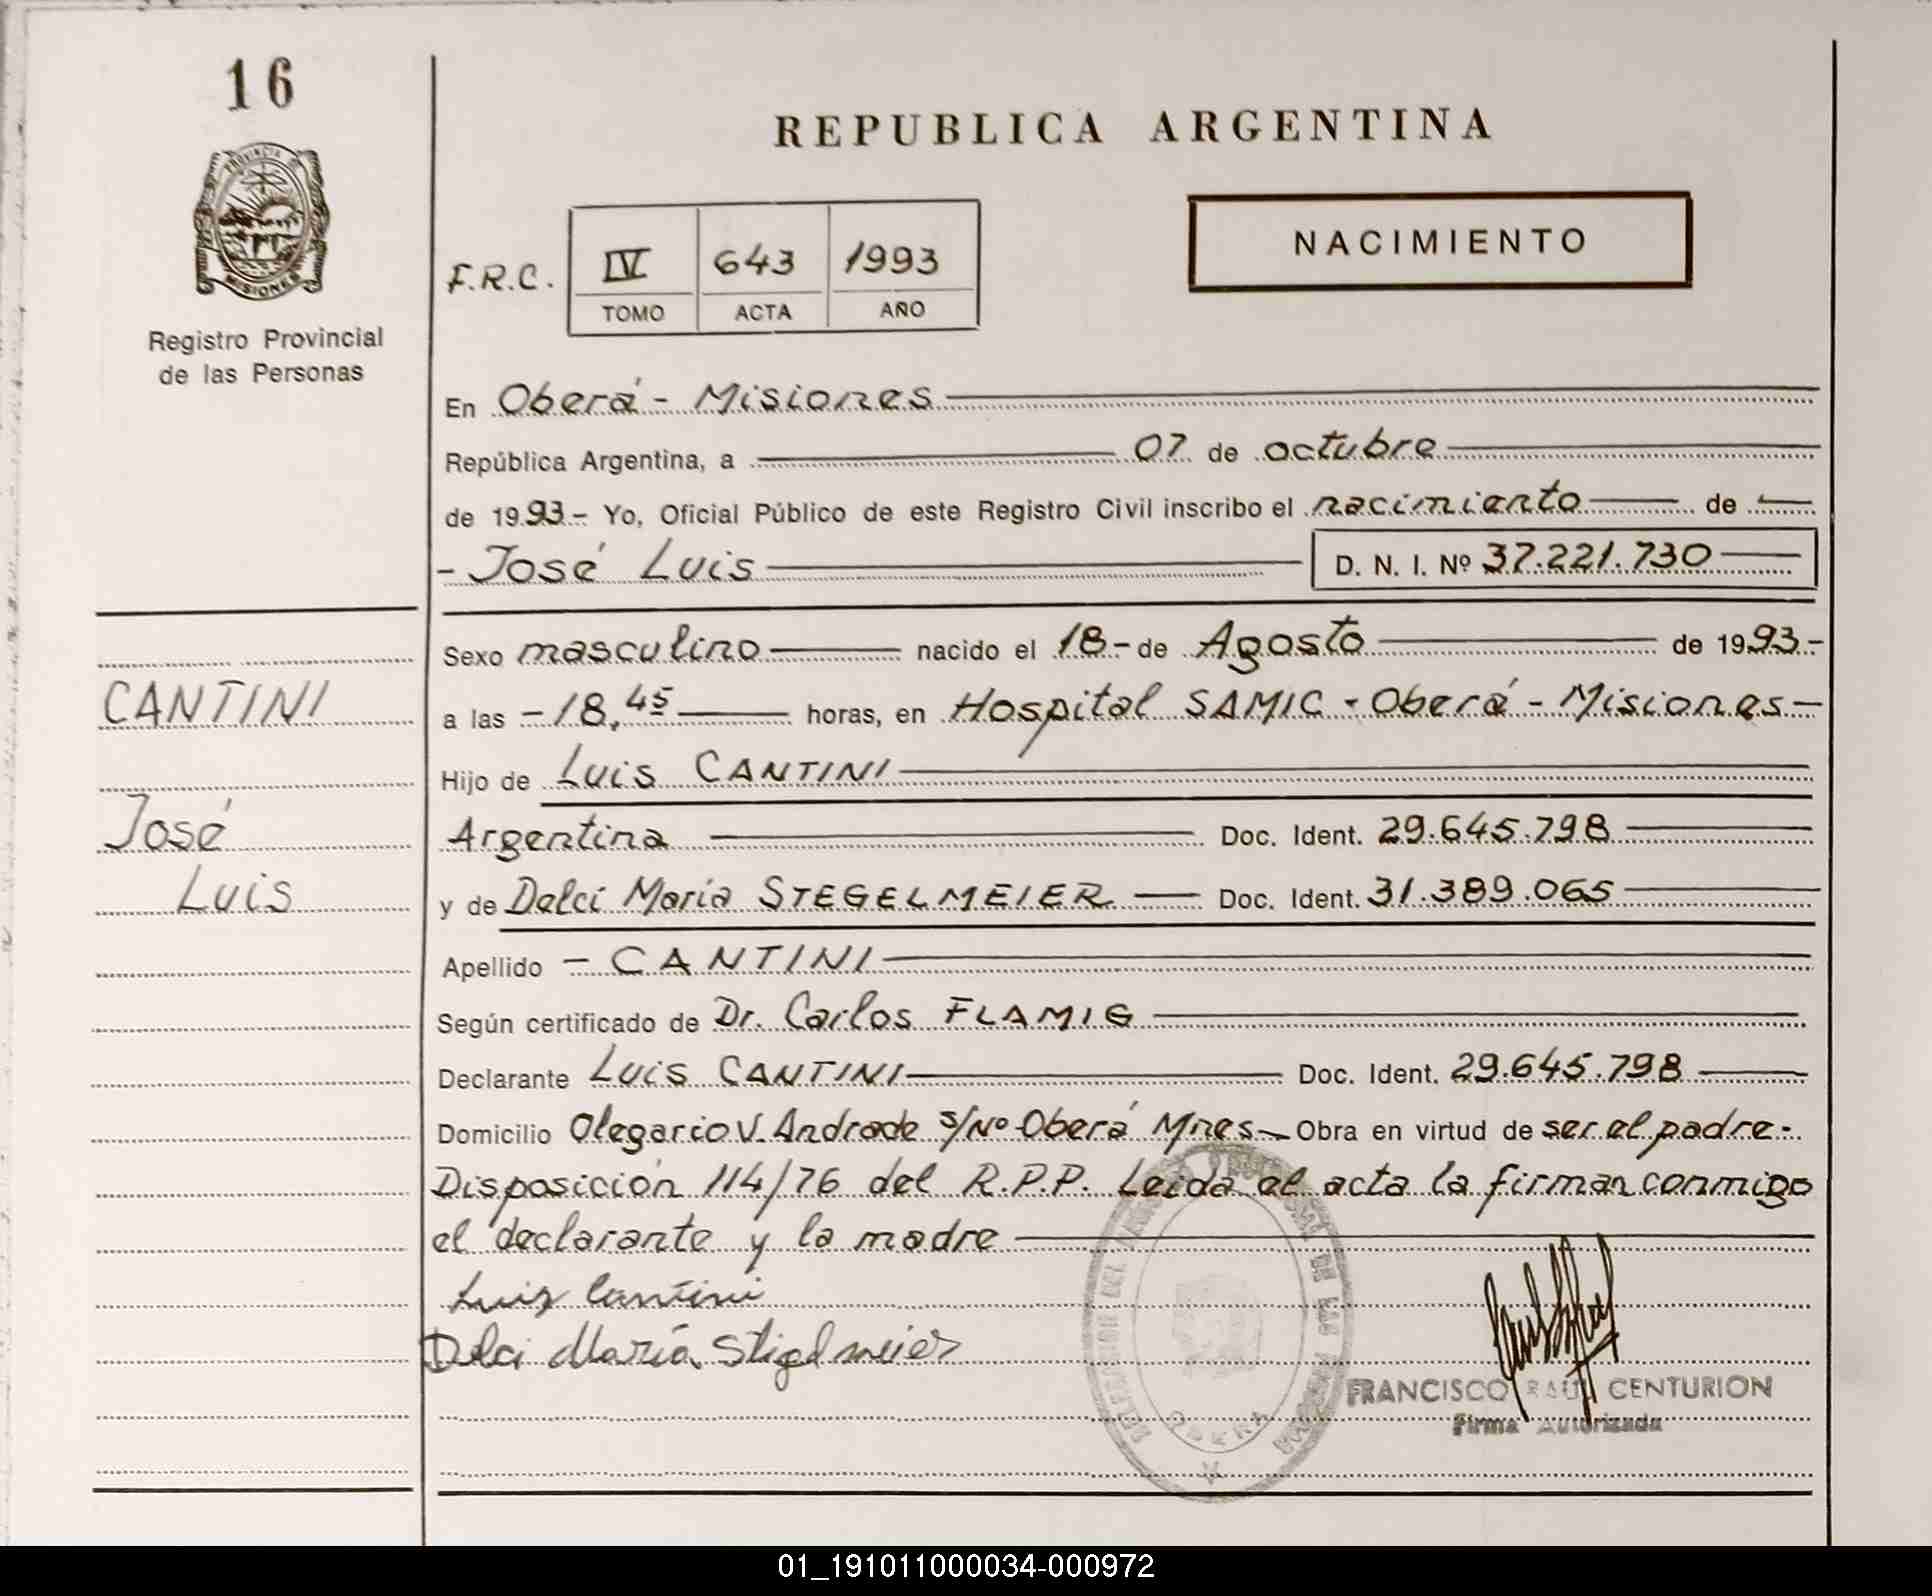 16
REPUBLICA ARGENTINA
PROVINCIA DE
MISIONES
Registro Provincial
de las Personas
F.R.C.
IV 643 1993
TOMO ACTA AÑO
NACIMIENTO
En Oberá - Misiones
República Argentina, a 07 de octubre
de 1993- Yo, Oficial Público de este Registro Civil inscribo el nacimiento de
- José Luis D. N. I. Nº 37.221.730
Sexo masculino nacido el 18 - de Agosto de 1993.-
CANTINI
a las - 18,45 horas, en Hospital SAMIC - Oberá - Misiones -
Hijo de Luis CANTINI
José
Argentina Doc. Ident. 29.645.798
Luis
y de Delci María STEGELMEIER Doc. Ident. 31.389.065
Apellido - CANTINI
Según certificado de Dr. Carlos FLAMIG
Declarante Luis CANTINI Doc. Ident. 29.645.798
Domicilio Olegario V. Andrade s/Nº Oberá Mnes - Obra en virtud de ser el padre -
Disposición 114/76 del R.P.P. Leida el acta la firman conmigo
el declarante y la madre
Luiz Cantini
Delci María Stigelmeier
DELEGACION DEL REGISTRO PROVINCIAL DE LAS PERSONAS
OBERA
FRANCISCO RAUL CENTURION
Firma Autorizada
01_191011000034-000972